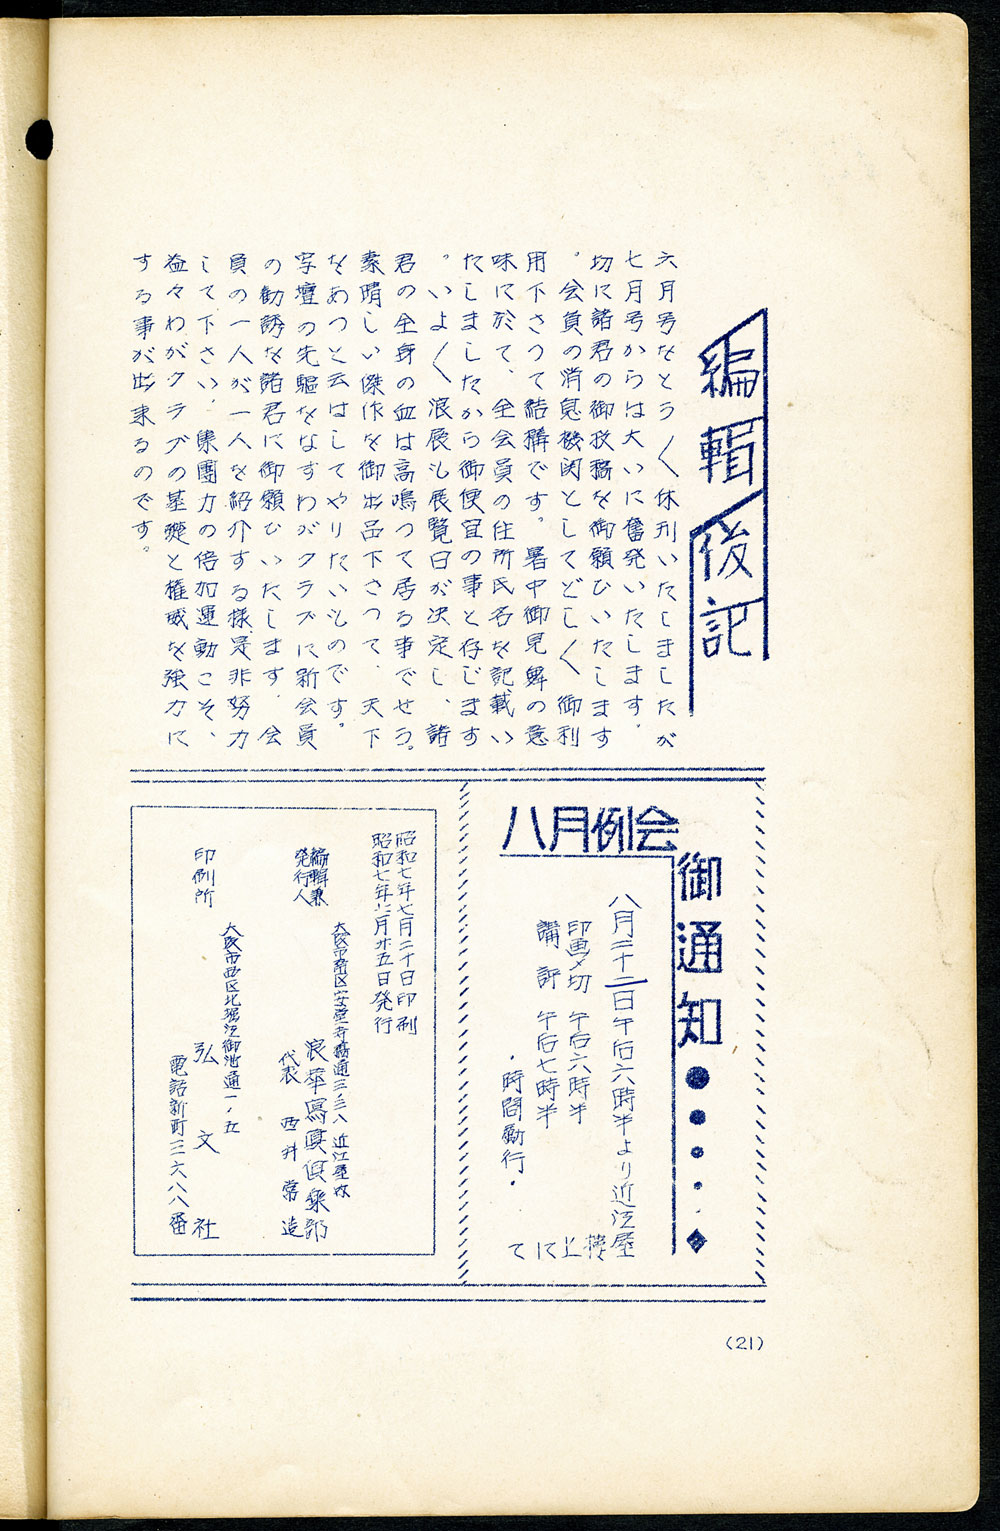 編輯後記
六月号をとう〱休刊いたしましたが
七月号からは大いに奮発いたします。
切に諸君の御投稿を御願ひいたします
。会員の消息機関としてどし〱御利
用下さつて結構です。暑中御見舞の意
味に於て、全会員の住所氏名を記載い
たしましたから御便宜の事と存じます
。いよ〱浪展も展覧日が決定し、諸
君の全身の血は高鳴つて居る事でせう。
素晴しい傑作を御出品下さつて、天下
をあつと云はしてやりたいものです。
写壇の先驅をなすわがクラブに新会員
の勧誘を諸君に御願ひいたします。会
員の一人が一人を紹介する様是非努力
して下さい。集團力の倍加運動こそ、
益々わがクラブの基礎と権威を強力に
する事が出来るのです。
八月例会
御通知
八月二十二日午后六時半より近江屋
楼上にて
印画〆切 午后六時半
講評 午后七時半
・時間勵行・
昭和七年七月二十日印刷
昭和七年七月廿五日発行
編輯兼
発行人
大阪市南区安堂寺橋通三ノ三八 近江屋内
浪華寫真倶楽部
代表 西井常造
印刷所
大阪市西区北堀江御池通一ノ五
弘文社
電話新町三六八八番
(21)